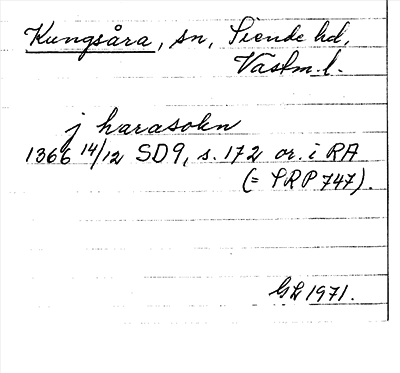 Kungsåra, sn, Siende hd,
Västm. l.
j harasokn
1366 14/12 SD9, s. 172 or. i RA
(= SRP 747).
GL 1971.